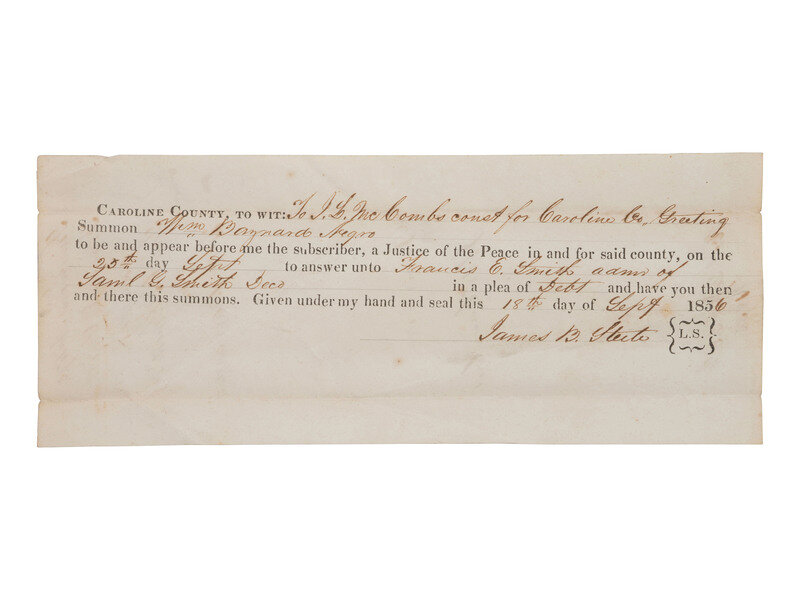 CAROLINE COUNTY, TO WIT: To J. L. McCombs const for Caroline Co, Greeting
Summon Wm Baynard Negro
to be and appear before me the subscriber, a Justice of the Peace in and for said county, on the
25th day Sept to answer unto Francis E. Smith admr of
Saml G. Smith Decd in a plea of Debt and have you then
and there this summons. Given under my hand and seal this 18th day of Sept 1856
James B. Steele {L.S.}